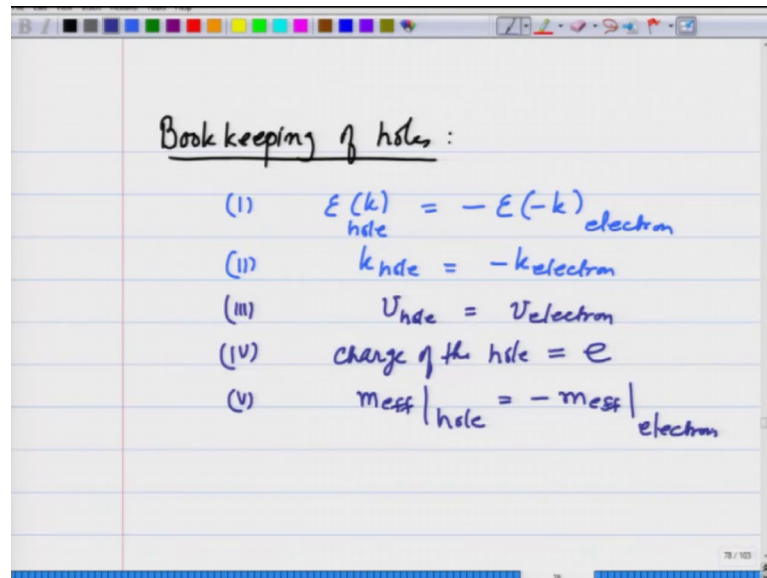 Book keeping of holes :
(I) ε(k) hole = - ε(-k) electron
(II) k hole = - k electron
(III) v hole = v electron
(IV) charge of the hole = e
(V) meff | hole = - meff | electron
78 / 103